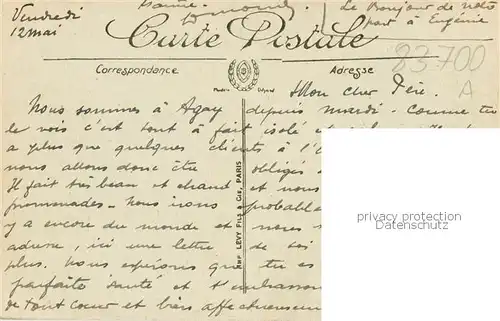 Vendredi
12 mai
Le Bonjour de notre
part à Eugénie
Carte Postale
83700
A
Correspondance
Adresse
Mon cher Père.
Nous sommes à Agay depuis mardi. Comme tu
le vois c'est tout à fait isolé et
a plus que quelques clients à l'
nous allons donc être obligés
Il fait très beau et chaud et nous
promenades. Nous irons probabl
y a encore du monde et nous
adresse, ici une lettre de toi
plus. Nous espérons que tu es
parfaite santé et t'embrasson
de tout cœur et bien affectueusement
Imp. LEVY FILS & CIE, PARIS
privacy protection
Datenschutz